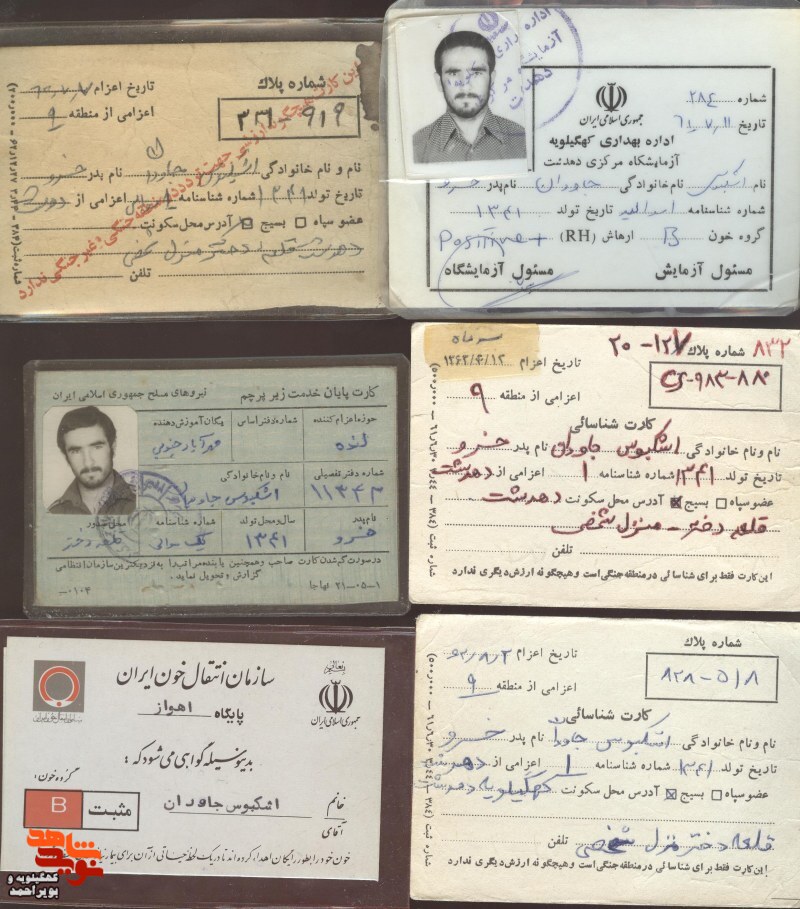 شماره پلاك
تاریخ اعزام
۳۳۱-۹۱۹
اعزامی از منطقه ۹
این کارت هیچگونه ارزشی جهت تردد در منطقه جنگی و غیر جنگی ندارد
نام و نام خانوادگی اشکبوس جاودان نام پدر خسرو
تاریخ تولد ۱۳۴۱ شماره شناسنامه اعزامی از دهدشت
عضو سپاه بسیج آدرس محل سکونت
دهدشت قلعه دختر منزل شخصی
تلفن
شماره ۲۸۴
تاریخ ۶۱،۷،۱۱
جمهوری اسلامی ایران
اداره بهداری کهگیلویه
آزمایشگاه مرکزی دهدشت
نام اشکبوس نام خانوادگی جاودان نام پدر خسرو
شماره شناسنامه تاریخ تولد ۱۳۴۱
گروه خون B ارهاش (RH) Positive +
مسئول آزمایش مسئول آزمایشگاه
کارت پایان خدمت زیر پرچم نیروهای مسلح جمهوری اسلامی ایران
حوزه اعزام کننده شماره دفتر اساس یگان آموزش دهنده
لنده
شماره دفتر تفصیلی نام و نام خانوادگی
۱۱۳۴۳ اشکبوس جاودان
نام پدر سال و محل تولد شماره شناسنامه محل صدور
خسرو ۱۳۴۱ یک قلعه دختر
در صورت گم شدن کارت صاحب و همچنین یابنده مراتب را به نزدیکترین سازمان انتظامی
گزارش و تحویل نماید.
۱-۰۵-۲۱ نهاجا ۰۱۰۴-
شماره پلاك ۸۳۲
۲۰-۱۲۷
تاریخ اعزام ۱۳۶۲/۴/۱۲
سه ماه
اعزامی از منطقه ۹
کارت شناسائی
نام و نام خانوادگی اشکبوس جاودان نام پدر خسرو
تاریخ تولد ۱۳۴۱ شماره شناسنامه ۱ اعزامی از دهدشت
عضو سپاه بسیج آدرس محل سکونت دهدشت
قلعه دختر - منزل شخصی
تلفن
این کارت فقط برای شناسائی در منطقه جنگی است و هیچگونه ارزش دیگری ندارد
بسمه تعالی
سازمان انتقال خون ایران
جمهوری اسلامی ایران
پایگاه اهواز
بدینوسیله گواهی می شود که :
گروه خون :
خانم
آقای
اشکبوس جاودان
مثبت B
خون خود را بطور رایگان اهداء کرده اند تا در یک لحظه حیاتی از آن برای
نوید شاهد
کهگیلویه و
بویر احمد
شماره پلاك
۸۲۸-۵۱۸
تاریخ اعزام ۶۲/۸/۲
اعزامی از منطقه ۹
کارت شناسائی
نام و نام خانوادگی اشکبوس جاودان نام پدر خسرو
تاریخ تولد ۱۳۴۱ شماره شناسنامه ۱ اعزامی از دهدشت
عضو سپاه بسیج آدرس محل سکونت کهگیلویه دهدشت
قلعه دختر منزل شخصی
تلفن
این کارت فقط برای شناسائی در منطقه جنگی است و هیچگونه ارزش دیگری ندارد